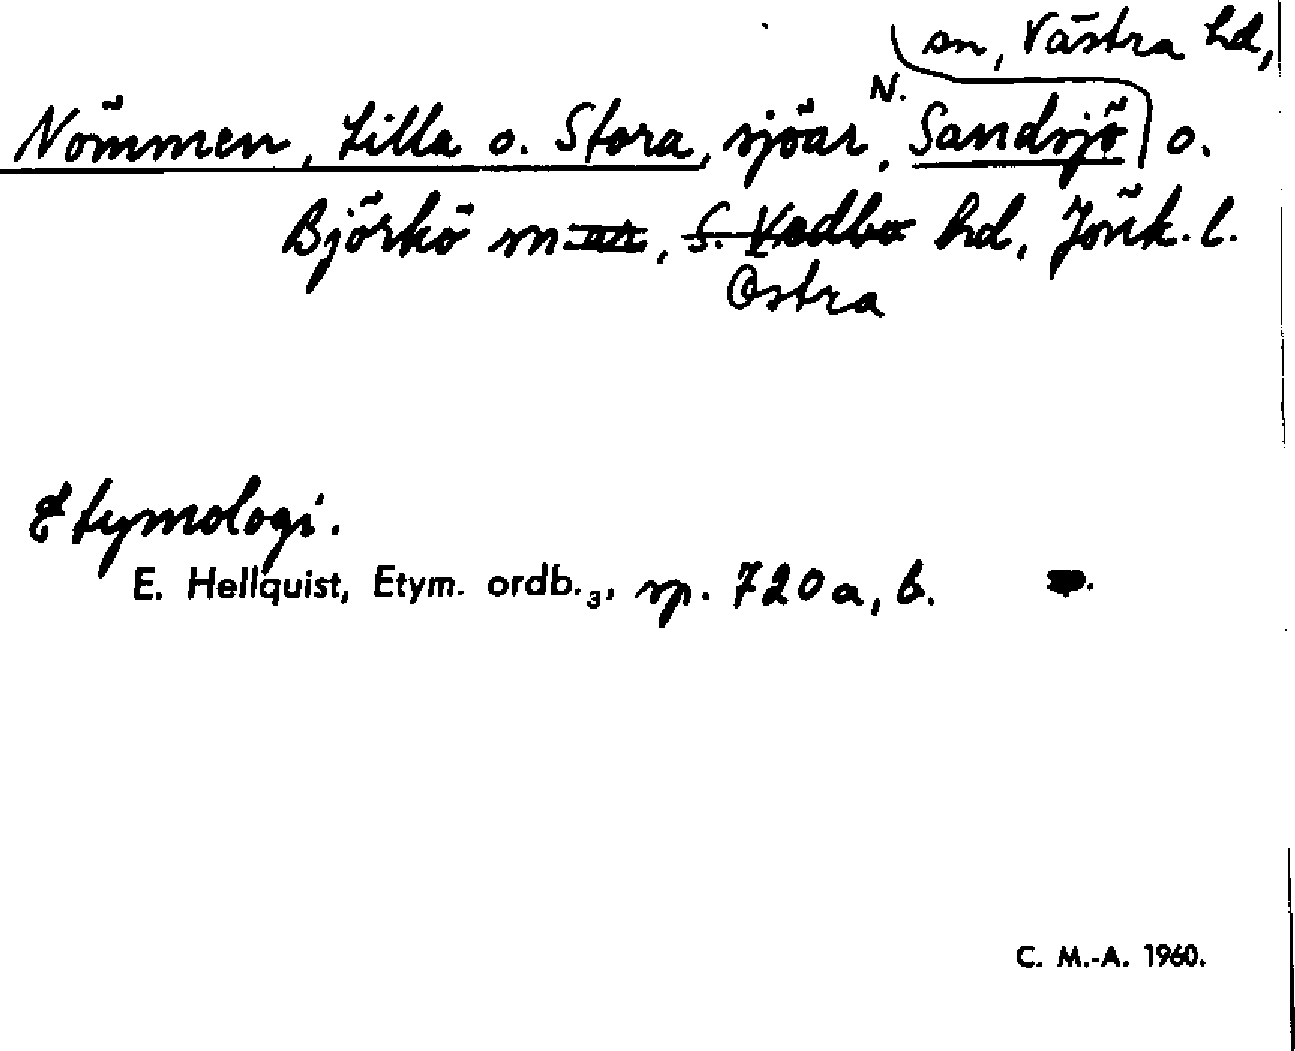 sn, Västra hd,
Nömmen, Lilla o. Stora, sjöar, N. Sandsjö o.
Björkö sn-ar, S. Vedbo hd, Jönk. l.
Östra
Etymologi.
E. Hellquist, Etym. ordb.3, sp. 720 a, b.
C. M.-A. 1960.